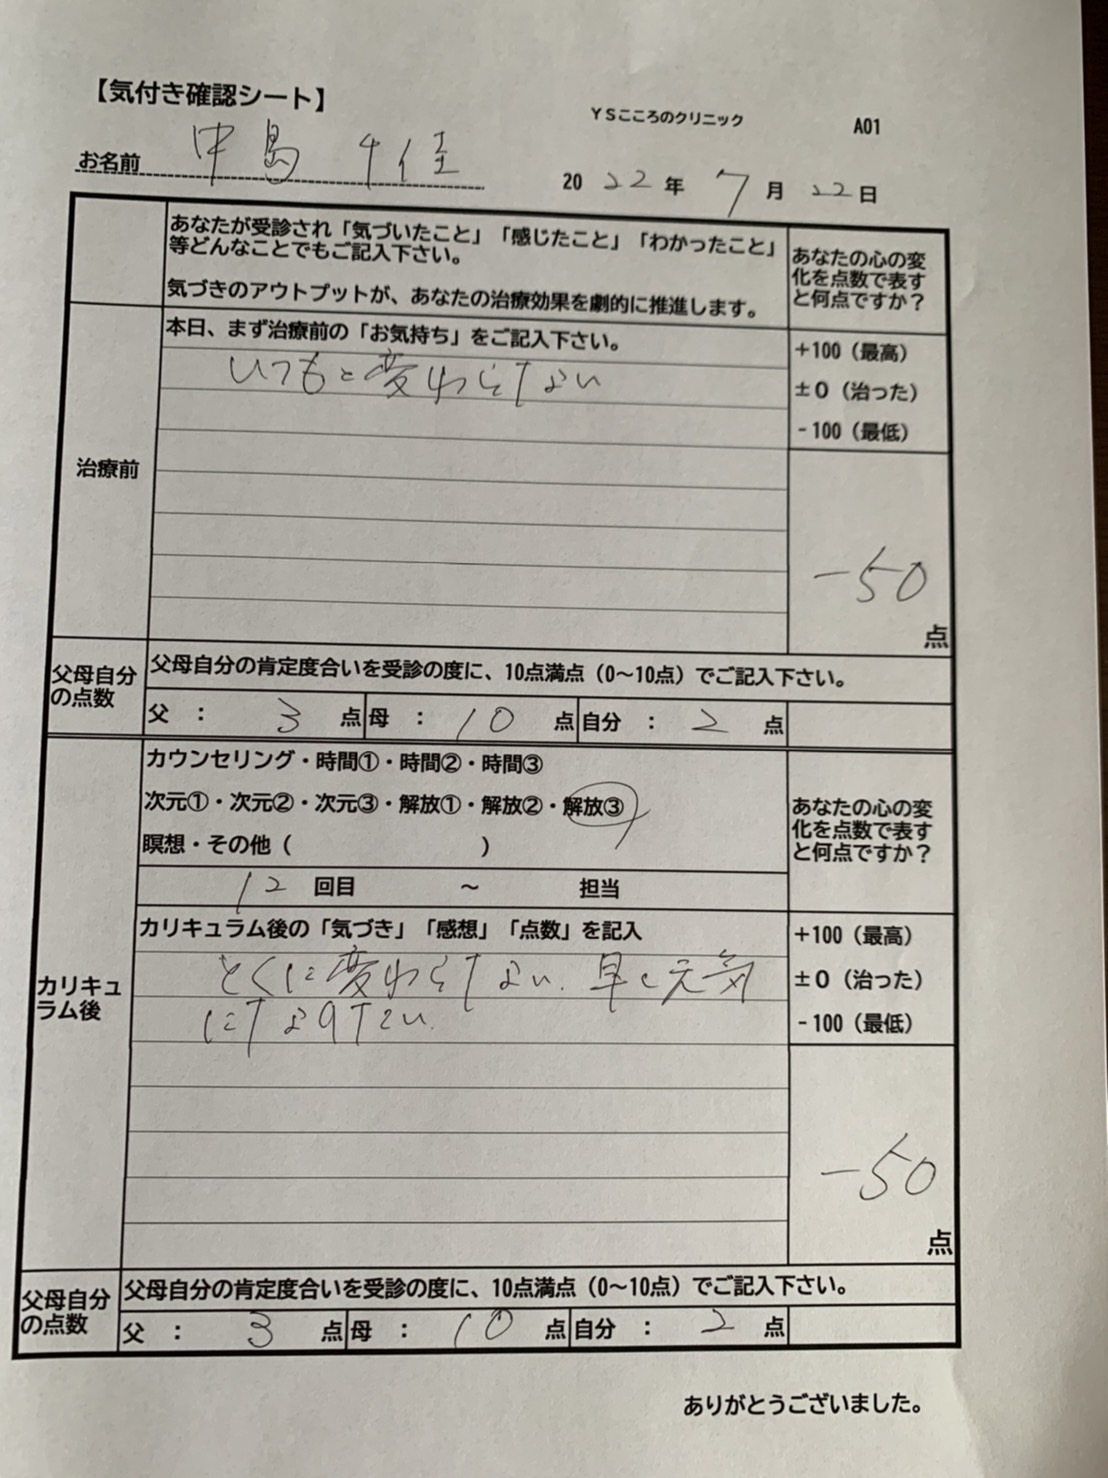 【気付き確認シート】
YSこころのクリニック
A01
お名前 中島 千佳
2022年 7月 22日
あなたが受診され「気づいたこと」「感じたこと」「わかったこと」
等どんなことでもご記入下さい。
気づきのアウトプットが、あなたの治療効果を劇的に推進します。
あなたの心の変
化を点数で表す
と何点ですか?
治療前
本日、まず治療前の「お気持ち」をご記入下さい。
いつもと変わらない
+100(最高)
±0(治った)
-100(最低)
-50
点
父母自分
の点数
父母自分の肯定度合いを受診の度に、10点満点(0~10点)でご記入下さい。
父 : 3 点 母 : 10 点 自分 : 2 点
カリキュ
ラム後
カウンセリング・時間①・時間②・時間③
次元①・次元②・次元③・解放①・解放②・解放③
瞑想・その他( )
12 回目 ~ 担当
あなたの心の変
化を点数で表す
と何点ですか?
カリキュラム後の「気づき」「感想」「点数」を記入
とくに変わらない.早く元気
になりたい.
+100(最高)
±0(治った)
-100(最低)
-50
点
父母自分
の点数
父母自分の肯定度合いを受診の度に、10点満点(0~10点)でご記入下さい。
父 : 3 点 母 : 10 点 自分 : 2 点
ありがとうございました。